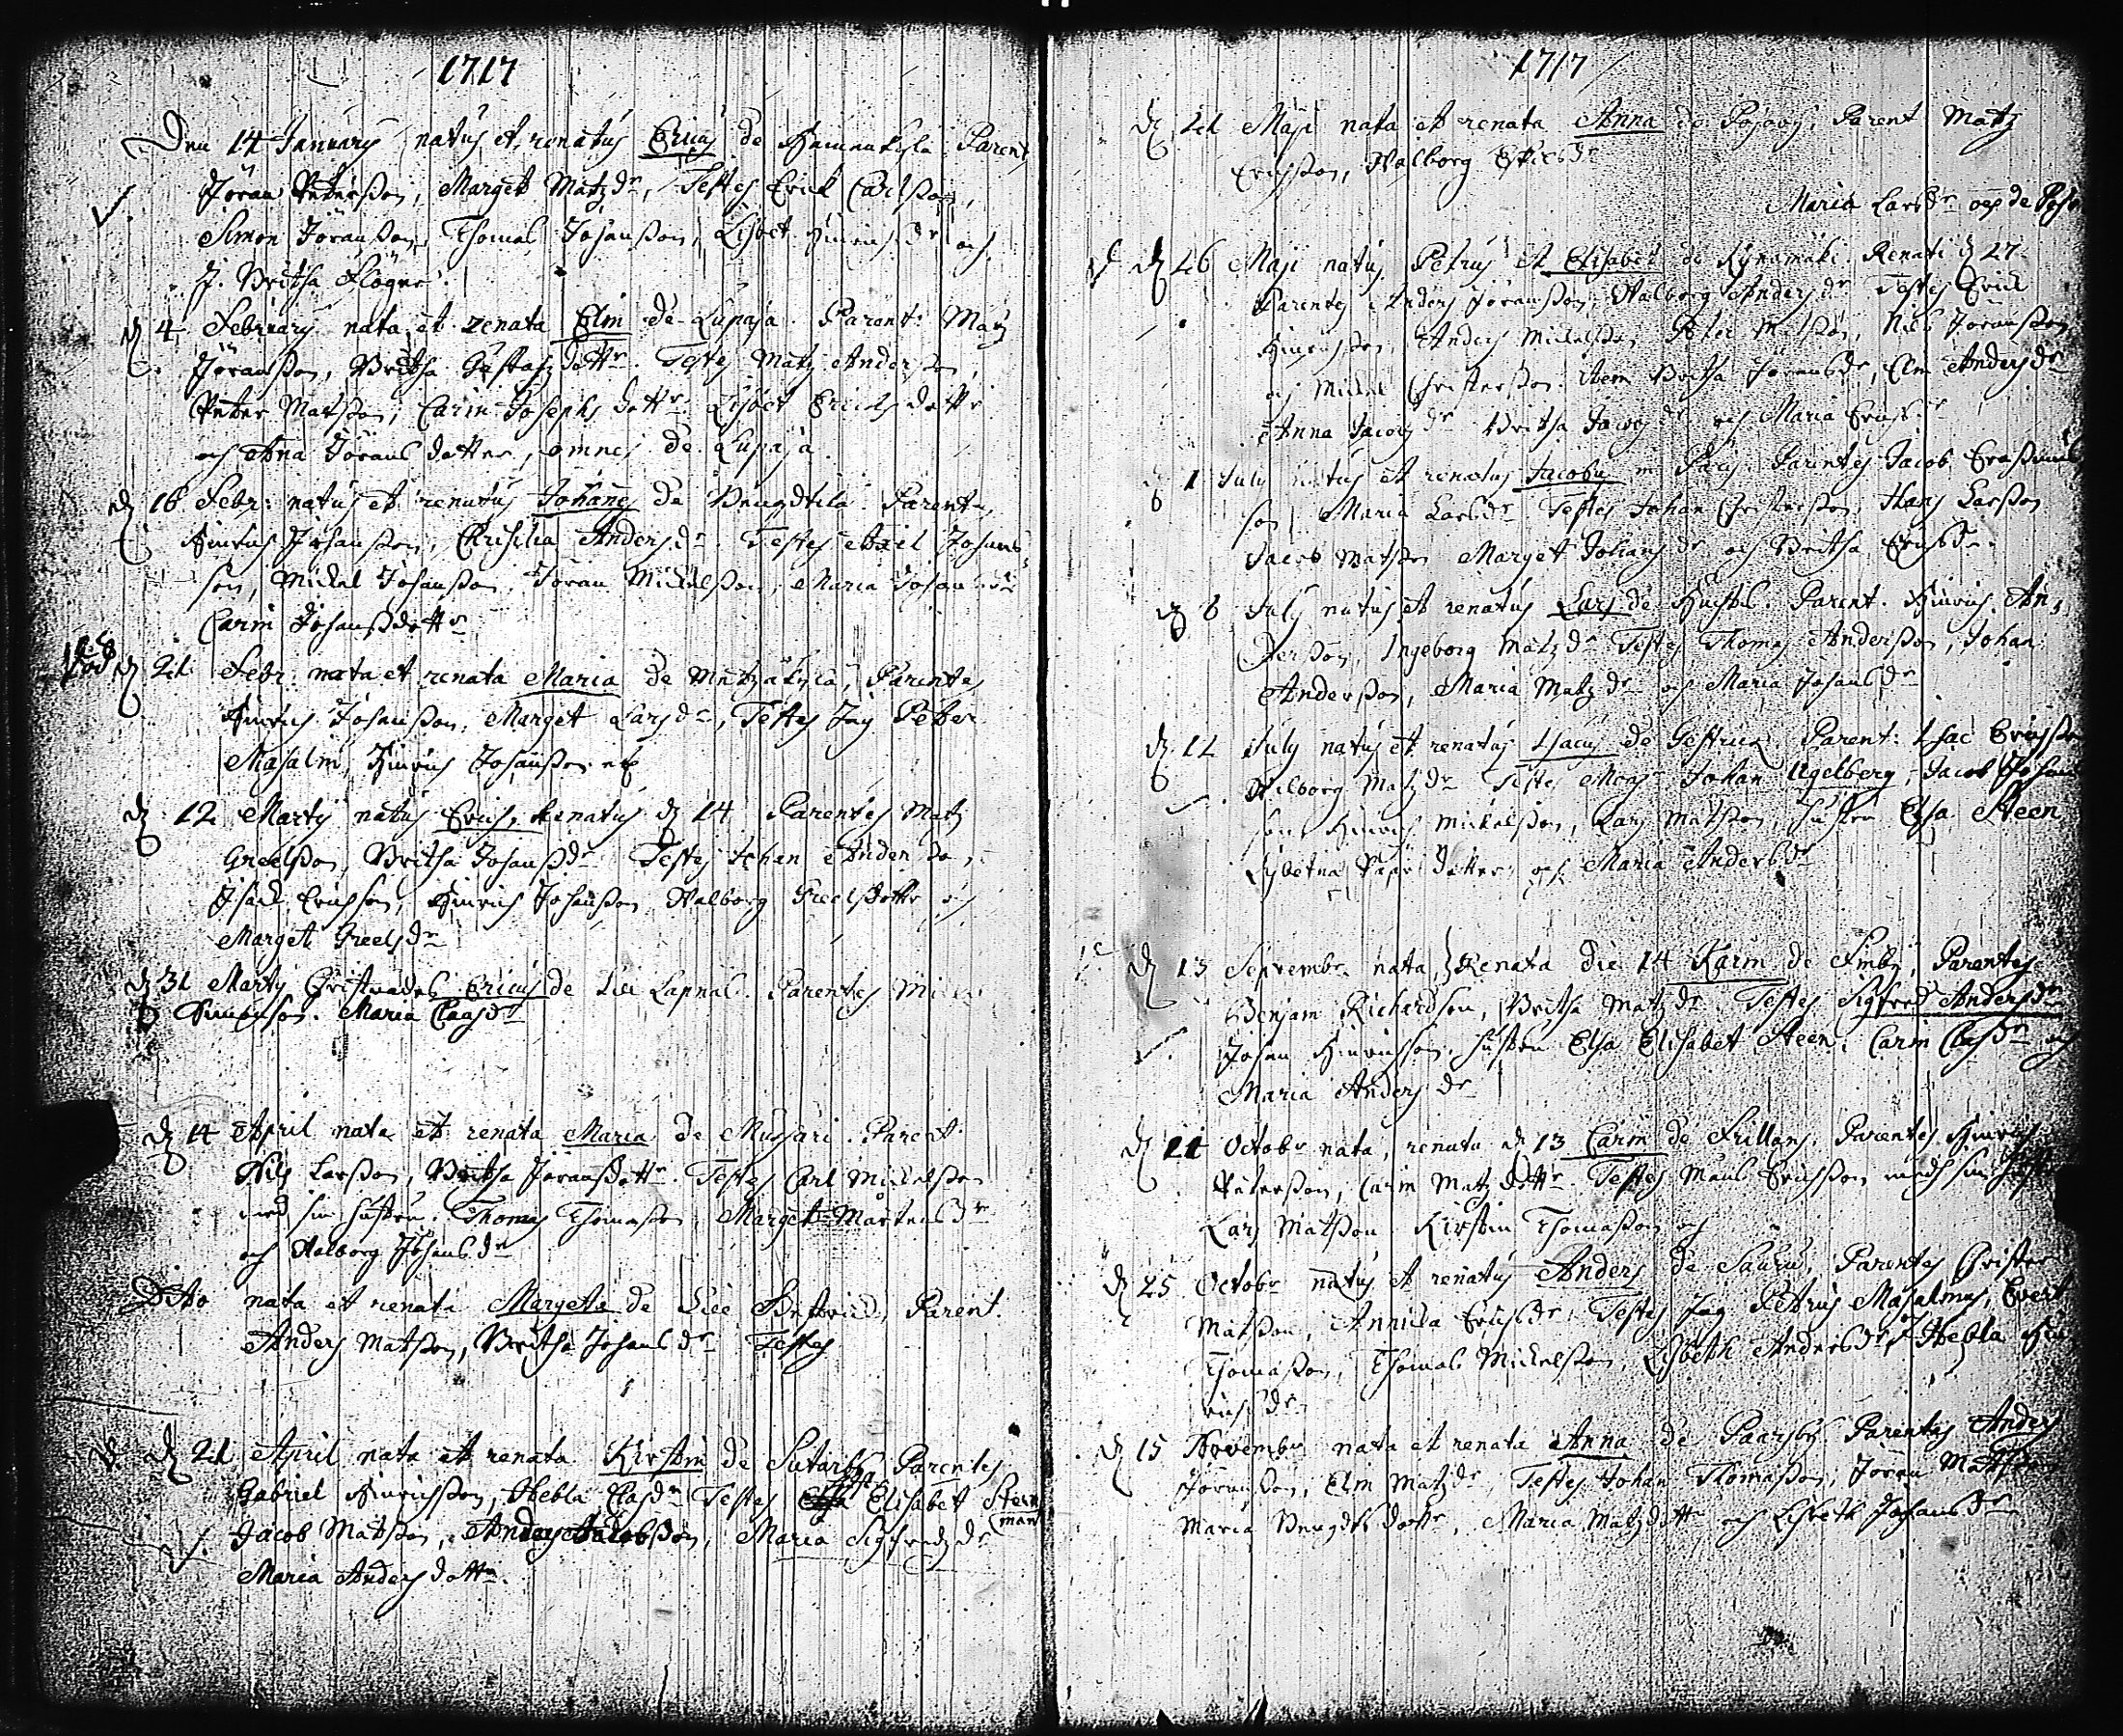 1717
Den 14 January natus et renatus Ericus de Parent
Jöran Petersson, Marget Matzdr, Testes Erick Carlsson,
Simon Jöransson, Thomas Johansson, Lisbet Hinrichsdr och
J. Britha Flögne
d 4 February nata et renata Elin de Lupaja. Parent: Matz
Jöransson, Britha Gustafzdottr. Testes Matz Andersson,
Peter Matsson, Carin Josephsdottr Lisbet Erichsdottr
och Anna Jöransdotter, omnes de Lupaja.
d 16 Febr: natus et renatus Johanes de Bengdtila. Parente,
Hinrich Johansson, Andersdr. Testes Axel Johans
son, Mickel Johansson Jöran Mickelsson, Maria Johansdr
Carin Johansdottr
d 21 Febr. nata et renata Maria de Parentes
Hinrich Johansson, Marget Larsdr, Testes Jag Petter
Masalin, Hinrich Johansson
d. 12 Marty natus Erich, Renatus d 14 Parentes Matz
Greelsson, Britha Johansdr Testes Johan Andersson,
Isack Erichson, Hinrich Johansson Walborg Greelsdottr och
Marget Greelsdr
d 31 Marty Christnades Ericus de Lill Lapnäs. Parentes
Simonson. Maria Clasdr
d 14 April nata et renata Maria de Mussari. Parent
Nils Larsson, Britha Jöransdottr. Testes Carl Mickelsson
med sin hustru. Thomas Thomasson, Marget Mårtensdr
och Walborg Johansdr
Dito nata et renata Margeta de Lill Parent.
Anders Matsson, Britha Johansdr Testes
d 21 April nata et renata Kirstin de Sutarby Parentes
Gabriel Hinrichsson, Hebla Clasdr Testes Elsa Elisabet Steen
man
Jacob Matsson, Anders Jacobsson, Maria Sigfredzdr
Maria Andersdottr.
1717
d 21 Maji nata et renata Anna de Pojoby, Parent Matz
Erichsson, Walborg
Maria Larsdr de Pojo
d 26 Maji natus Petrus et Elisabet de Kynämäki. Renati d 27
Parentes Anders Jöransson, Walborg Andersdr Testes Erick
Hinrichsson, Anders Mickelsson, Peter Matsson, Nils Jöransson
och Mickel Christersson. item Britha Jöransdr, Elin Andersdr
Anna Jacobsdr Britha Jacobsdr och Maria Erichsdr
d 1 July natus et renatus Jacobus in Parentes Jacob Erasmus
son, Maria Larsdr Testes Johan Christersson, Hans Larsson
Jacob Matsson Marget Johansdr och Britha Erichsdr
d 6 July natus et renatus Lars de Parent. Hinrich An,
dersson, Ingeborg Matzdr Testes Thomas Andersson, Johan
Andersson, Maria Matzdr och Maria Johansdr
d. 12 July natus et renatus Isacus de Gestrick. Parent: Isac Erichsson
Walborg Matzdr Testes Johan Ugelberg, Jacob Johans
son Hinrich Mickelsson, Lars Matsson, hustru Elsa Steen
dotter och Maria Andersdr
d 13 Septembr. nata, Renata die 14 Karin de Finby, Parentes
Benjam Richardson, Britha Matzdr Testes Sigfred Andersdr
Johan Hinrichsson, hustru Elsa Elisabet Steen, Carin Clasdr och
Maria Andersdr
d 11 Octobr nata, renata d 13 Carin de Frillans, Parentes Hinrich
Petersson, Carin Matzdottr. Testes Måns Erichsson med sin hustru
Lars Matsson Kirstin Thomasson och
d 25 Octobr natus et renatus Anders de Sauru, Parentes Christer
Matsson, Annicka Erichsdr Testes Jag Petrus Masalinus, Evert
Thomasson, Thomas Mickelsson, Lisbeth Andersdr, och Hebla Hin
richsdr
d 15 November nata et renata Anna de Paarsby Parentes Anders
Jöransson, Elin Matzdr, Testes Johan Thomasson, Jöran Mattsson
Maria Bengdtsdottr, Maria Matzdottr och Lisbeth Johansdr